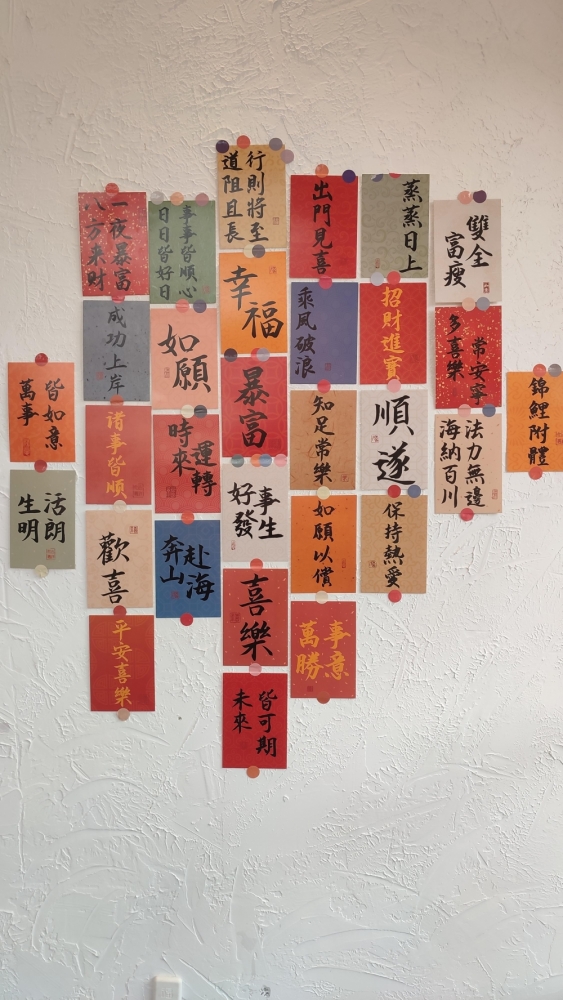 萬事
皆如意
生活
明朗
一夜暴富
八方来财
成功上岸
諸事皆順
歡喜
平安喜樂
事事皆順心
日日皆好日
如願
時來
運轉
奔山
赴海
道阻且長
行則將至
幸福
暴富
好事
發生
喜樂
未來
皆可期
出門見喜
乘風破浪
知足常樂
如願以償
萬事
勝意
蒸蒸日上
招財進寶
順遂
保持熱愛
富瘦
雙全
多喜樂
常安寧
法力無邊
海納百川
錦鯉附體